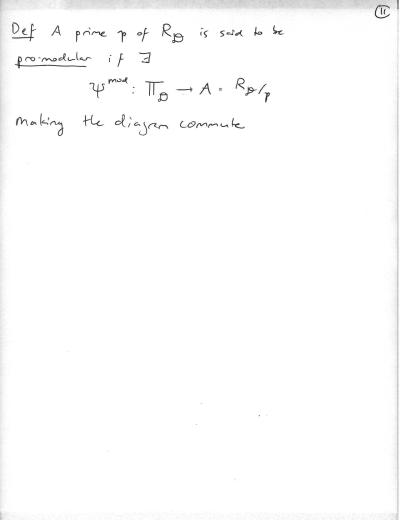 11
Def A prime p of R_𝒟 is said to be
pro-modular if ∃
ψ^mod : 𝕋_𝒟 → A = R_𝒟/p
making the diagram commute